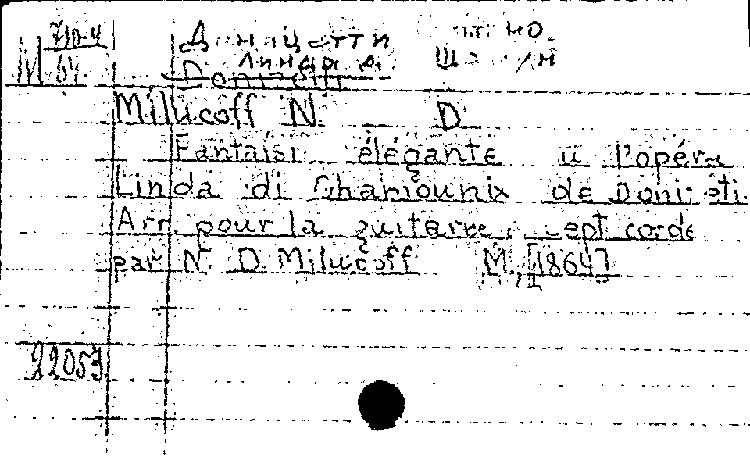 710-4 Доницетти
М 64. Линда д
Donizetti
Milucoff N. D.
Fantaisi élégante u l'opéra
Linda di Chamounix de Doni eti
Arr. pour la guitarre sept corde
par N. D. Milucoff M., [1864?]
22053